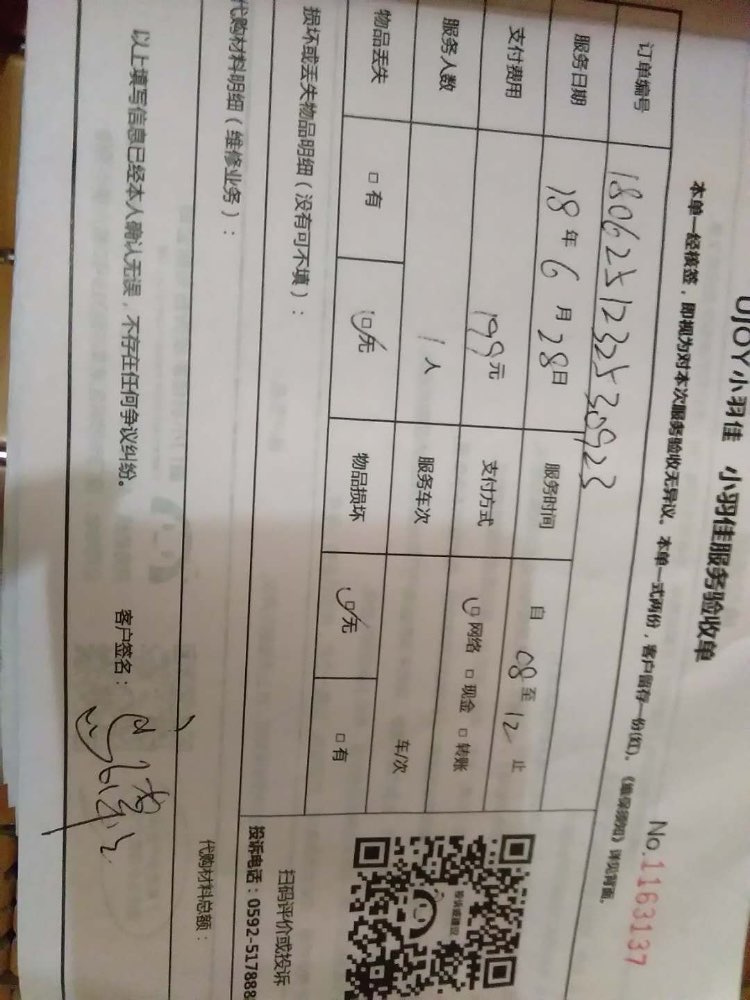 UJOY小羽佳 小羽佳服务验收单
No.1163137
本单一经核签，即视为对本次服务验收无异议。本单一式两份，客户留存一份(红)。《维保须知》详见背面。
订单编号 18062512325 30923
服务日期 18年6月28日 服务时间 自08至12止
支付费用 199元 支付方式 □网络 □现金 □转账
服务人数 1人 服务车次 车/次
物品丢失 □有 □无 物品损坏 □无 □有
损坏或丢失物品明细（没有可不填）：
扫码评价或投诉
投诉电话：0592-517888
代购材料明细（维修业务）：
代购材料总额：
以上填写信息已经本人确认无误，不存在任何争议纠纷。 客户签名：